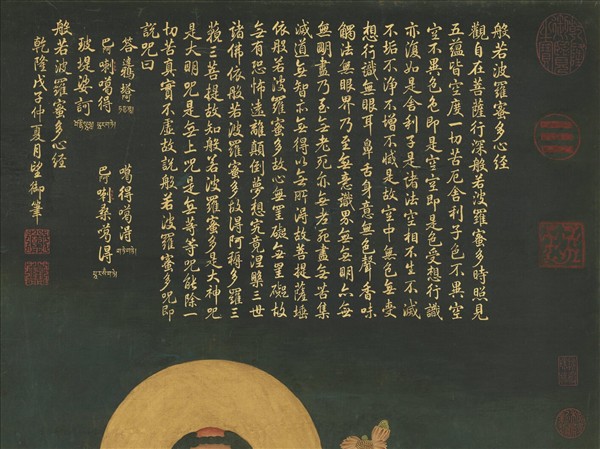 般若波羅蜜多心經
觀自在菩薩行深般若波羅蜜多時照見
五蘊皆空度一切苦厄舍利子色不異空
空不異色色即是空空即是色受想行識
亦復如是舍利子是諸法空相不生不滅
不垢不淨不增不減是故空中無色無受
想行識無眼耳鼻舌身意無色聲香味
觸法無眼界乃至無意識界無無明亦無
無明盡乃至無老死亦無老死盡無苦集
滅道無智亦無得以無所得故菩提薩埵
依般若波羅蜜多故心無罣礙無罣礙故
無有恐怖遠離顛倒夢想究竟涅槃三世
諸佛依般若波羅蜜多故得阿耨多羅三
藐三菩提故知般若波羅蜜多是大神呪
是大明呪是無上呪是無等等呪能除一
切苦真實不虛故說般若波羅蜜多呪即
說呪曰
答達塔 噶得噶得
喇噶得 喇桑噶得
玻提娑訶
般若波羅蜜多心經
乾隆戊子仲夏月望御筆